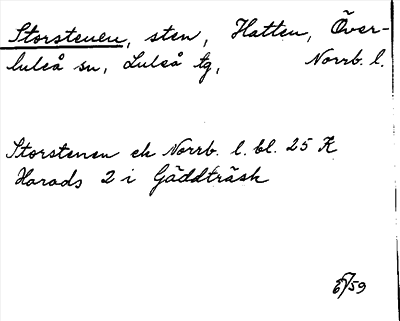 Storstenen, sten, Hatten, Över-
luleå sn, Luleå tg, Norrb. l.
Storstenen ek Norrb. l. bl. 25 K
Harads 2 i Gäddträsk
59